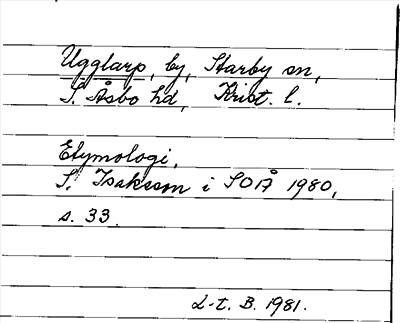 Ugglarp, by, Starby sn,
S. Åsbo hd, Krist. l.
Etymologi,
S. Isaksson i SOÅ 1980,
s. 33.
L-t. B. 1981.